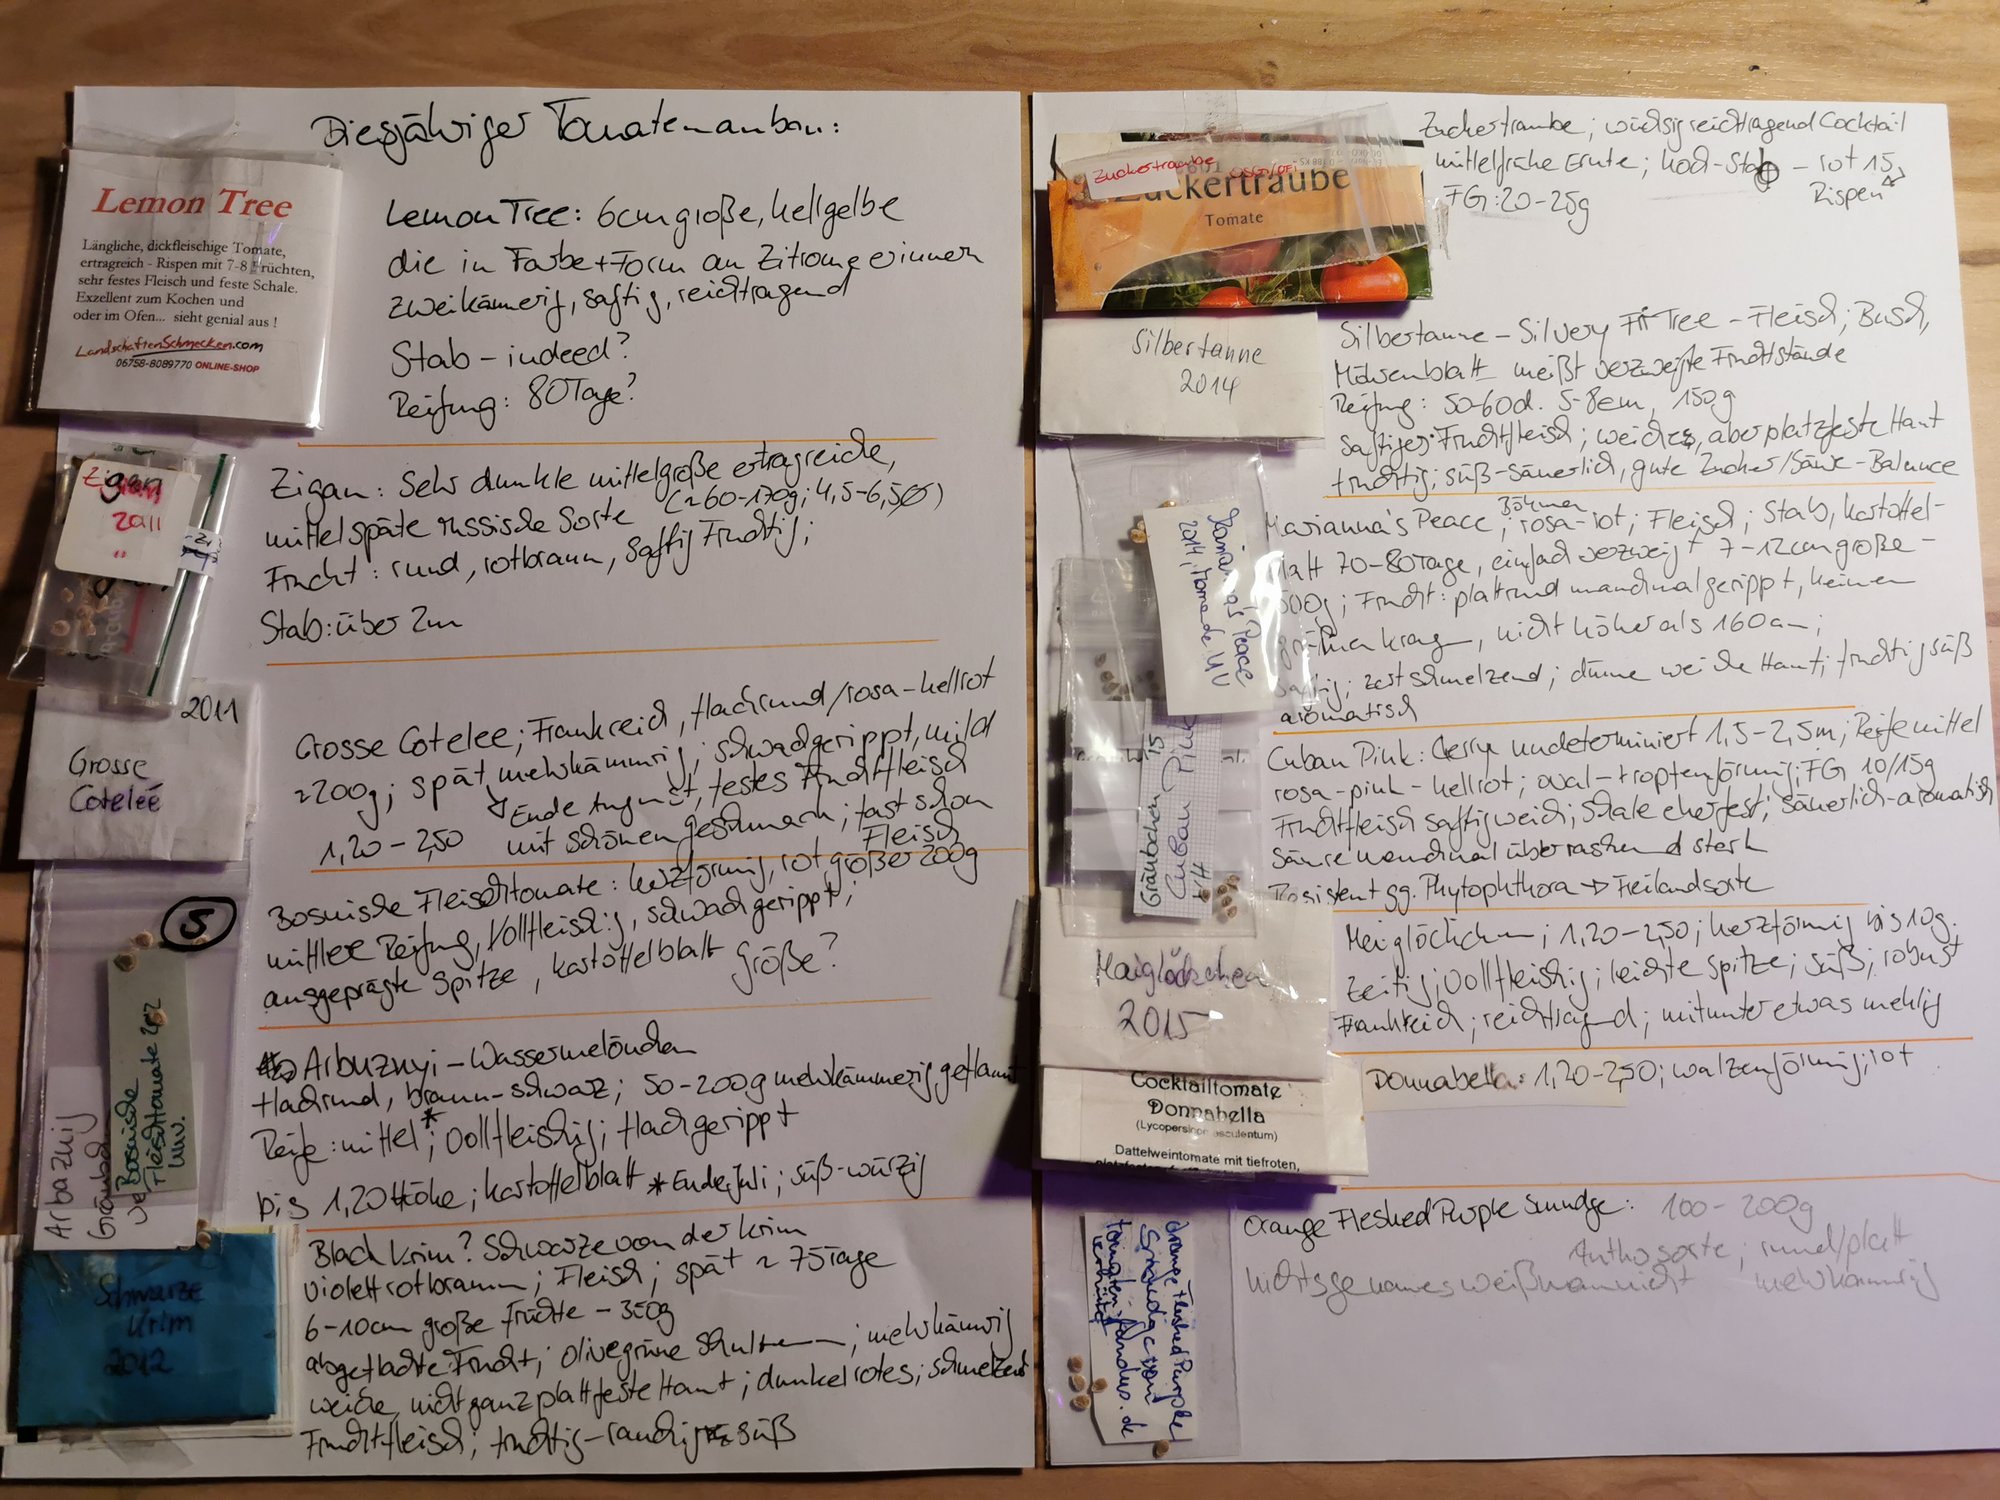 Diesjähriger Tomatenanbau:
Lemon Tree
Längliche, dickfleischige Tomate,
ertragreich - Rispen mit 7-8 Früchten,
sehr festes Fleisch und feste Schale.
Exzellent zum Kochen und
oder im Ofen... sieht genial aus !
LandschaftenSchmecken.com
06758-8089770 ONLINE-SHOP
Lemon Tree: 6cm große, hellgelbe
die in Farbe+Form an Zitrone erinnern
zweikämmerig, saftig, reichtragend
Stab - indeed?
Reifung: 80Tage?
Zigan
2011
Zigan: Sehr dunkle mittelgroße ertragreiche,
mittelspäte russische Sorte (~60-170g; 4,5-6,5Ø)
Frucht: rund, rotbraun, saftig fruchtig;
Stab: über 2m
2011
Grosse
Coteleé
Grosse Cotelee; Frankreich, flachrund/rosa-hellrot
~200g; spät, mehrkämmrig; schwachgerippt, mild
Ende August, festes Fruchtfleisch
1,20-2,50 mit schönen geschmack; fast schon
Fleisch
5
Bosnische
Fleischtomate
Bosnische Fleischtomate: herzförmig, rot, größer 200g
mittlere Reifung, Vollfleischig, schwach gerippt;
ausgeprägte Spitze, Kartoffelblatt Größe?
Arbaznij
Arbuznyi - Wassermelönchen
flachrund, braun-schwarz; 50-200g mehrkämmerig geflammt
Reife: mittel*; vollfleischig; flachgerippt
bis 1,20 Höhe; Kartoffelblatt *Ende Juli; süß-würzig
Schwarze
Krim
2012
Black Krim? Schwarze von der Krim
violettrotbraun; Fleisch; spät ~ 75Tage
6-10cm große Früchte - 350g
abgeflachte Frucht; olivegrüne Schultern; mehrkämrig
weiche, nicht ganz platzfeste Haut; dunkelrotes; schmelzend
Fruchtfleisch; fruchtig-rauchig süß
Zuckertraube
Zuckertraube
Tomate
Zuckertraube; wüchsig reichtragend Cocktail
mittelfrühe Ernte; hoch-Stab - rot 15
Rispen
FG: 20-25g
Silbertanne
2014
Silbertanne - Silvery Fir Tree - Fleisch; Busch,
Möhrenblatt meißt verzweigte Fruchtstände
Reifung: 50-60d. 5-8cm, 150g
saftiges Fruchtfleisch; weiches, aber platzfeste Haut
fruchtig; süß-säuerlich, gute Zucker/Säure-Balance
Marianna's Peace
2014
Marianna's Peace; rosa-rot; Fleisch; Stab, Kartoffel-
Böhmen
blatt 70-80Tage, einfach verzweigt 7-12cm große -
500g; Frucht: plattrund manchmal gerippt, keinen
grünen kragen, nicht höher als 160cm;
saftig; zart schmelzend; dünne weiche Haut; fruchtig süß
aromatisch
Gränbchen 15
Cuban Pink
Cuban Pink: Cherry undeterminiert 1,5-2,5m; Reife mittel
rosa-pink-hellrot; oval-tropfenförmig; FG 10/15g
Fruchtfleisch saftig weich; Schale eher fest; säuerlich-aromatisch
Säure manchmal überraschend stark
Resistent gg. Phytophthora → Freilandsorte
Maiglöckchen
2015
Maiglöckchen; 1,20-2,50; herzförmig bis 10g.
zeitig; vollfleischig; leichte Spitze; süß; robust
Frankreich; reichtragend; mitunter etwas mehlig
Cocktailtomate
Donnabella
(Lycopersicon esculentum)
Dattelweintomate mit tiefroten,
Donnabella: 1,20-2,50; walzenförmig; rot
Orange Fleshed Purple
Smudge
Orange Fleshed Purple Smudge: 100-200g
Anthosorte; rund/platt
nichts genaues weiß man nicht mehrkammrig